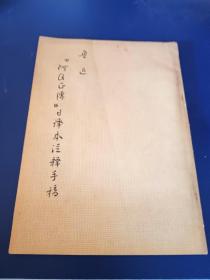 鲁迅
“阿Q正传”日译本注释手稿